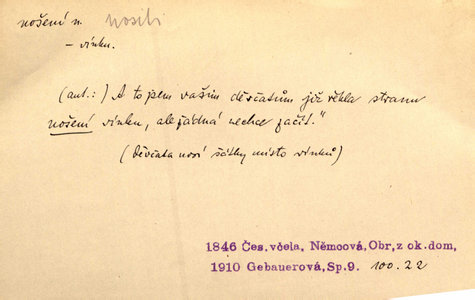 nošení n. nositi
– vínku.
(aut.:) A to jsem vašim děvčatům již řekla stranu
nošení vínku, ale žádná nechce začít."
(Děvčata nosí šátky místo vínků)
1846 Čes. včela, Němcová, Obr, z ok. dom,
1910 Gebauerová, Sp. 9. 100.22